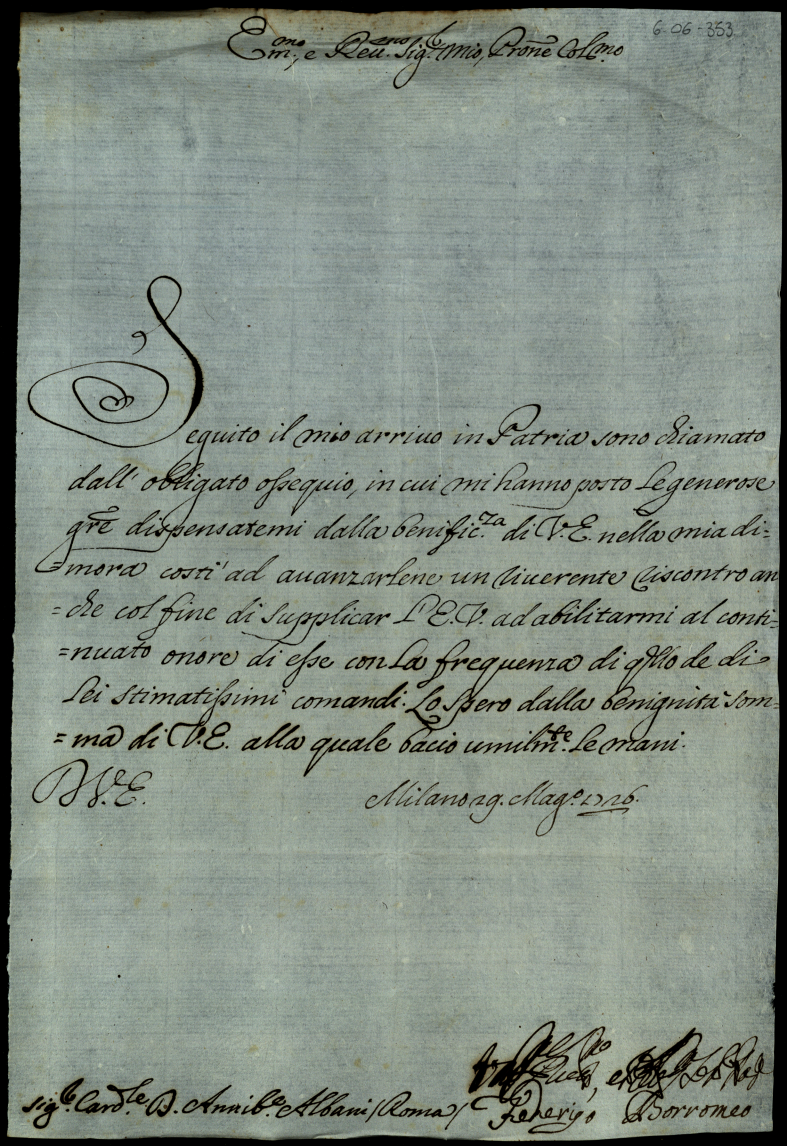 6-06-353
Em.mo, e Reu.mo Sig.r mio, Prone Colmo.
Seguito il mio arriuo in Patria sono chiamato
dall' obligato ossequio, in cui mi hanno posto le generose
grẽ dispensatemi dalla benific.za di V.E. nella mia di=
=mora costi' ad auanzarlene un riuerente riscontro an
=che col fine di supplicar l'E.V. ad abilitarmi al conti=
=nuato onore di esse con la frequenza di qllo de di
Lei stimatissimi comandi. Lo spero dalla benignità som=
=ma di V.E. alla quale bacio umilm.te le mani.
D V.E. Milano 29. Mag.o 1726.
Sig.r Card.le D. Annib.e Albani / Roma / Federigo Borromeo